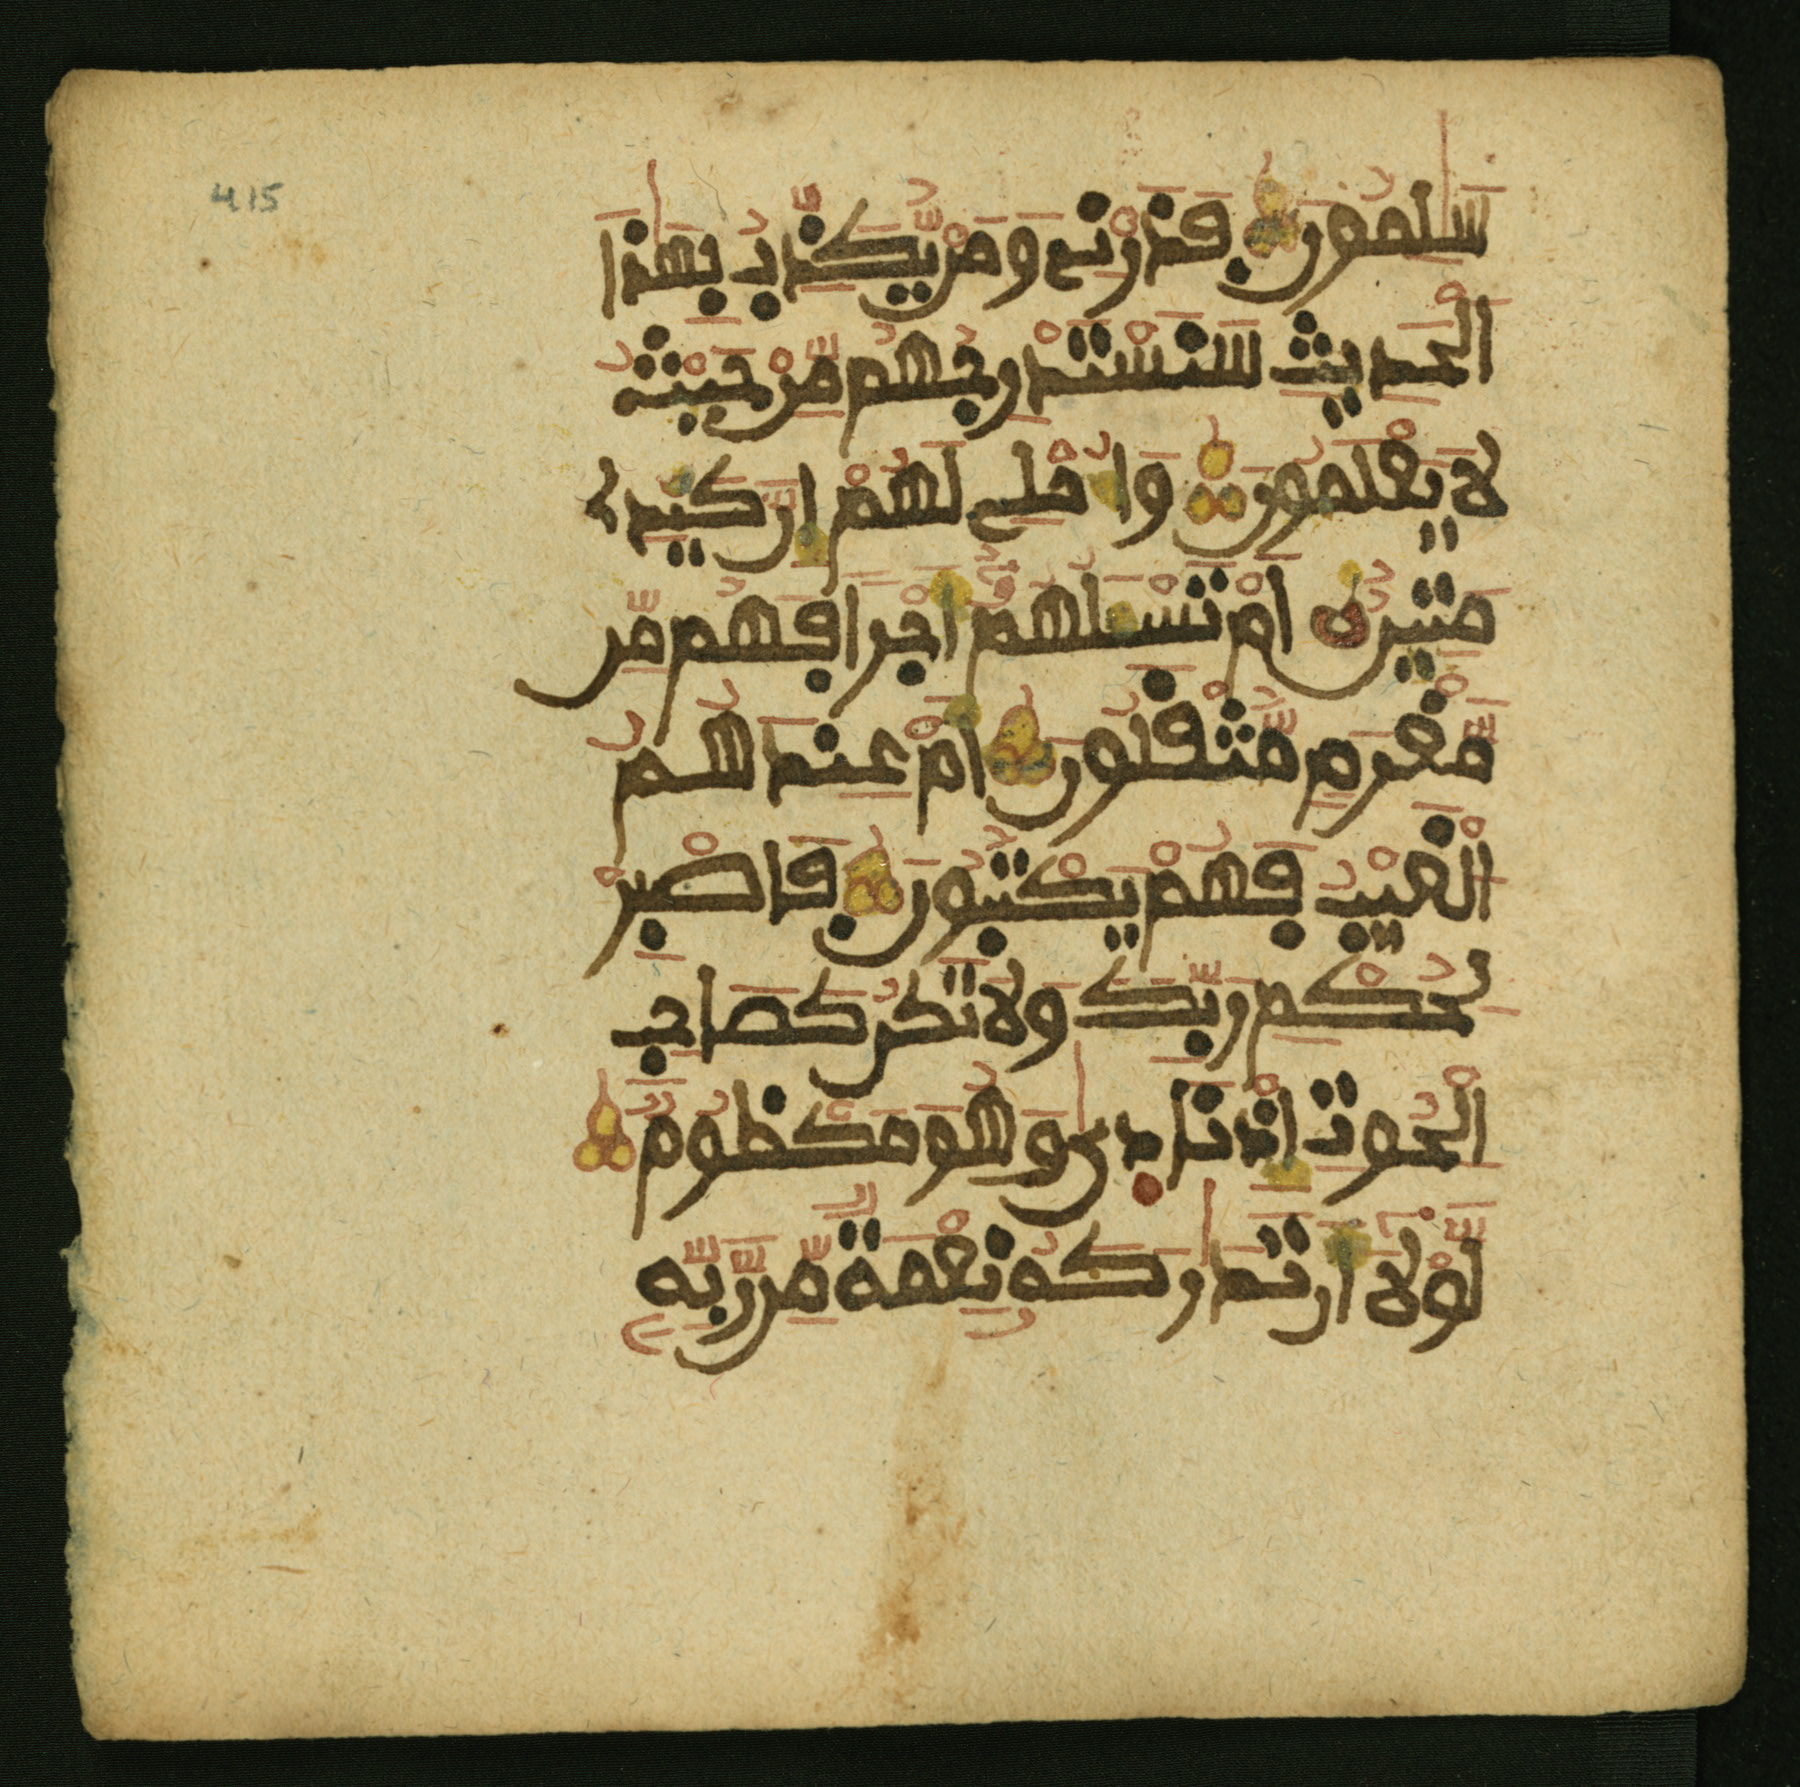 415
سَٰلِمُونَ فَذَرْنِے وَمَنْ يُّكَذِّبُ بِهَٰذَا
اَ۬لْحَدِيثِ سَنَسْتَدْرِجُهُم مِّنْ حَيْثُ
لَا يَعْلَمُونَ وَأُمْلِے لَهُمُ إِنَّ كَيْدِے
مَتِينٌ أَمْ تَسْـَٔلُهُمُ أَجْراً فَهُم مِّن
مَّغْرَمٍ مُّثْقَلُونَ أَمْ عِندَهُمُ
اُ۬لْغَيْبُ فَهُمْ يَكْتُبُونَ فَاصْبِرْ
لِحُكْمِ رَبِّكَ وَلَا تَكُن كَصَاحِبِ
اِ۬لْحُوتِ إِذْ نَادَىٰ وَهُوَ مَكْظُومٌ
لَّوْلَا أَن تَدَٰرَكَهُ نِعْمَةٌ مِّن رَّبِّهِ